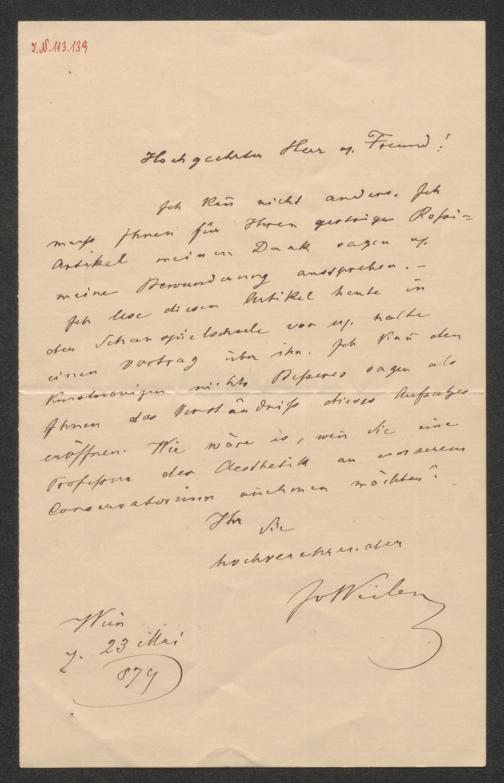 I.N. 113.139
Hochgeehrter Herr u. Freund!
Ich kan̄ nicht anders. Ich
muß Ihnen für Ihren gestrigen Rossi=
Artikel meinen Dank sagen u.
meine Bewunderung aussprechen. –
Ich lese diesen Artikel heute in
der Schauspielschule vor u. halte
einen Vortrag über ihn. Ich kan̄ den
Kunstnovizen nichts Besseres sagen als
Ihnen das Verständniß dieses Aufsatzes
eröffnen. Wie wäre es, wen̄ Sie eine
Professur der Aesthetik an unserem
Conservatorium annehmen möchten?
Ihr
Sie
hochverehrender
JvWeilen
Wien
23 Mai
879